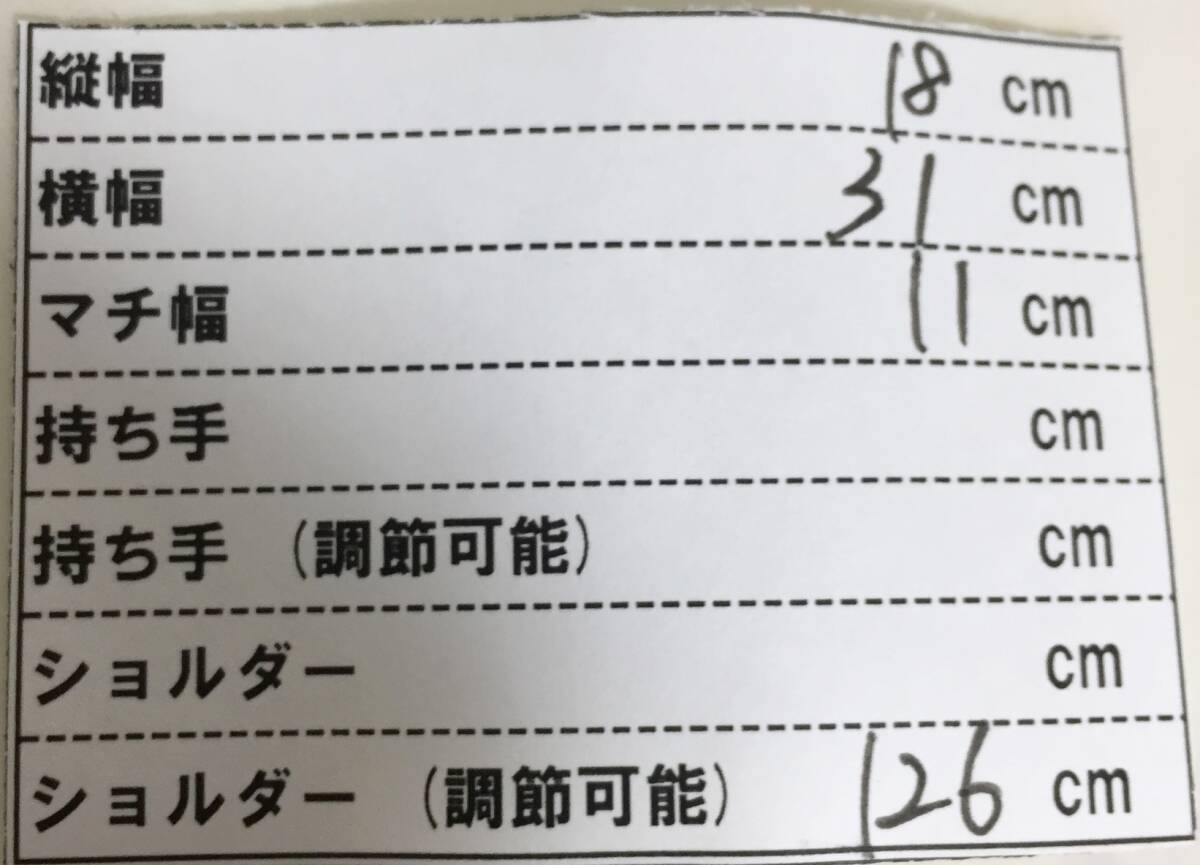 縦幅 18 cm
横幅 31 cm
マチ幅 11 cm
持ち手 cm
持ち手 (調節可能) cm
ショルダー cm
ショルダー (調節可能) 126 cm